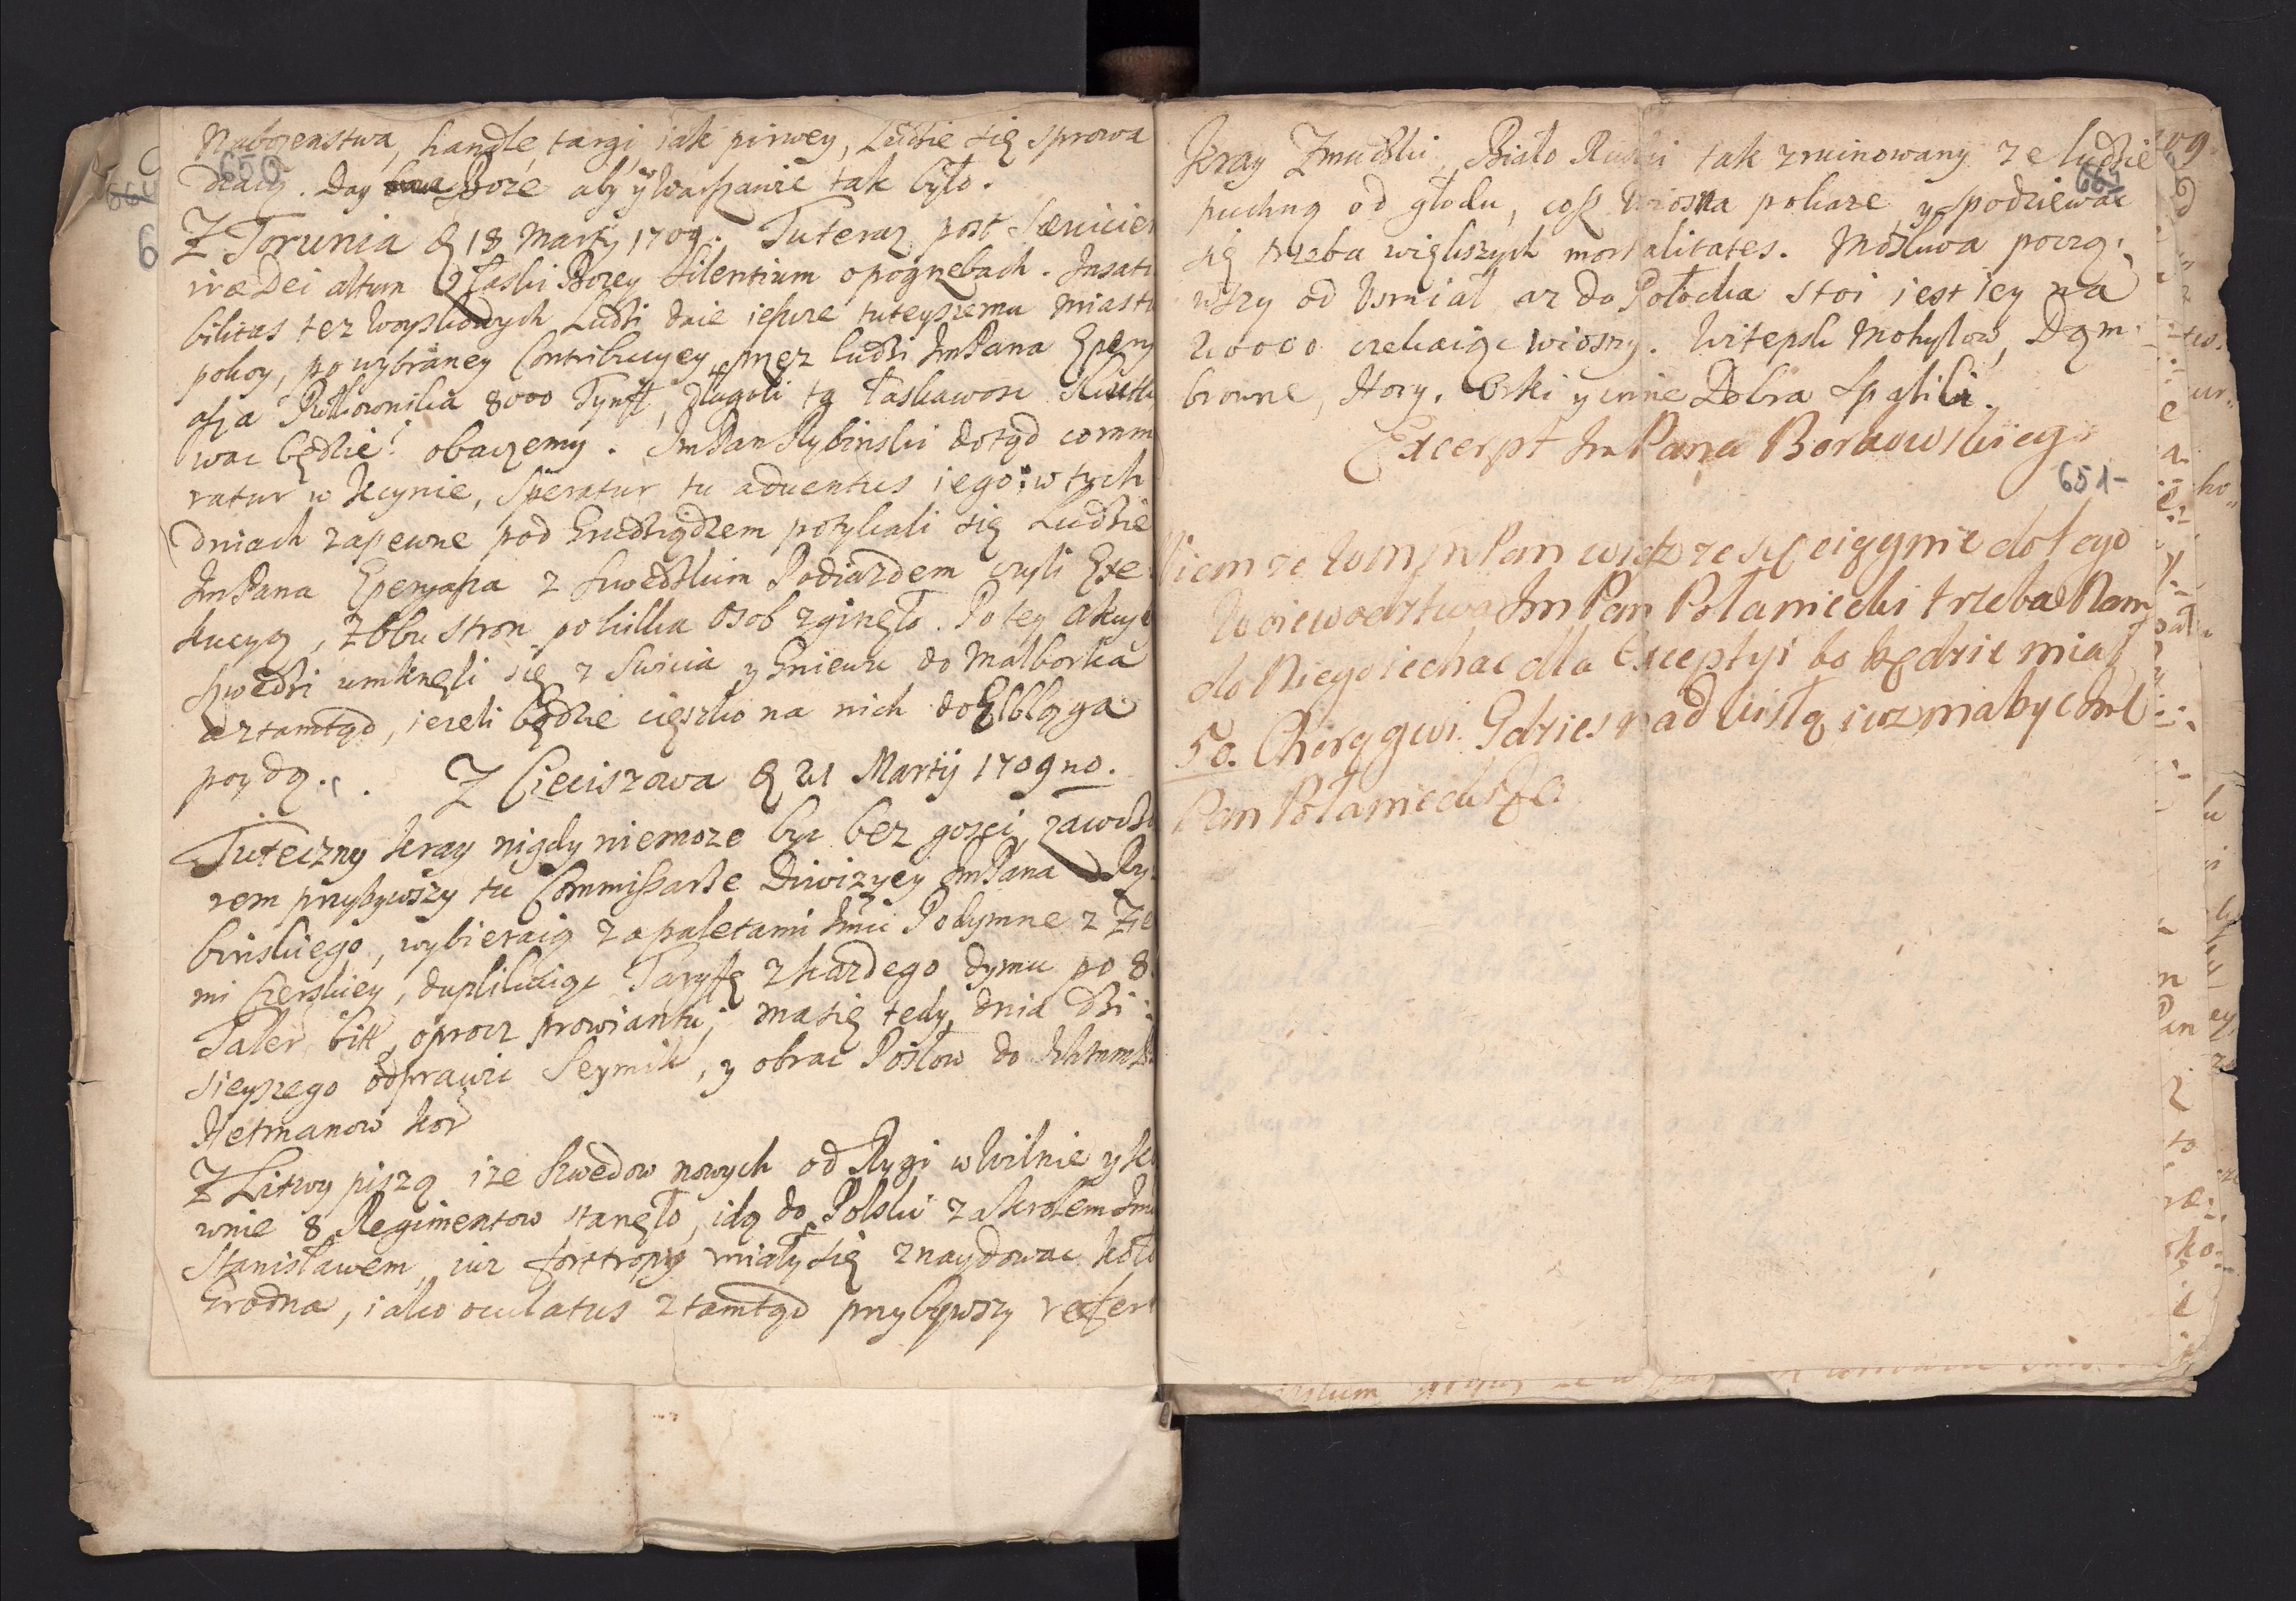 Nabozenstwa, handle, targi, iak pirwey, Ludzie się sprowa
dzaią. Day Boze aby y Warszawie tak było.
650
Z Torunia D 18 Martij 1709. Tuteraz post
iræ Dei altum z łaski Bozey silentium o pogrzebach.
bilitas tez Woyskowych Ludzi daie ieszcze tuteyszemu Miastu
pokoy, po wybraney Contribucyey przez ludzi ImPana
Pułkownika 8000 Tynff, długoli ta łaskawosc
wac będzie? obaczemy. ImPan Rybinski dotąd comm
ratur w Kcynie, speratur tu adventus iego: w tych
dniach zapewne pod Grudziądzem potykali się Ludzie
ImPana z Szwedzkim Podiazdem czyli Exe
kucyą, z obu stron po kilka Osob zginęło. Po tey akcyi
Szwedzi umknęli się z Swicia y Gniewu do Malborka
a ztamtąd, iezeli będzie cięszko na nich do Elbląga
poydą. Z Cieciszowa D 21 Martij 1709 no.
Tuteczny kray nigdy niemoze byc bez gosci,
rem przybywszy tu Commissarze Diwizyey ImPana Ry
binskiego, wybieraią za paletami Podymne z Zie
mi Czerskiey, duplikuiąc Taryffę z kazdego dymu po 8
Taler bitt, oprocz prowiantu, ma się tedy dnia dzi
sieyszego odprawic Seymik, y obrac Posłow do
Hetmanow kor
Z Litwy piszą ize Szwedow nowych od Rygi w Wilnie y Ko
wnie 8 Regimentow stanęło, idą do Polski za Krolem Imci
Stanisławem, iuz fortropy miały się znaydowac koło
Grodna, iako oculatus ztamtąd przybywszy refert
Kray Zmudzki, Biało Ruski tak zruinowany ze ludzie
puchną od głodu, cosz Wiosna pokaze, y spodziewac
661
się trzeba większych mortalitates. Moskwa począ
wszy od Usmiat az do Połocka stoi iest iey na
20000 czekaiąc wiosny. Witepsk Mohylow, Dąm
browne, Hory, Orki y inne Dobra spalili.
Excerpt Im Pana Borkowskiego
651
Wiem ze WmmPan widz ze się ciągnie do tego
Woiewodztwa Im Pan Potaniecki trzeba Nam
do Niego iechac dla Exceptyi bo będzie miał
50. Chorągwi. Gdzies nad Wisłą iuz ma byc Iml
Pan Potaniecki